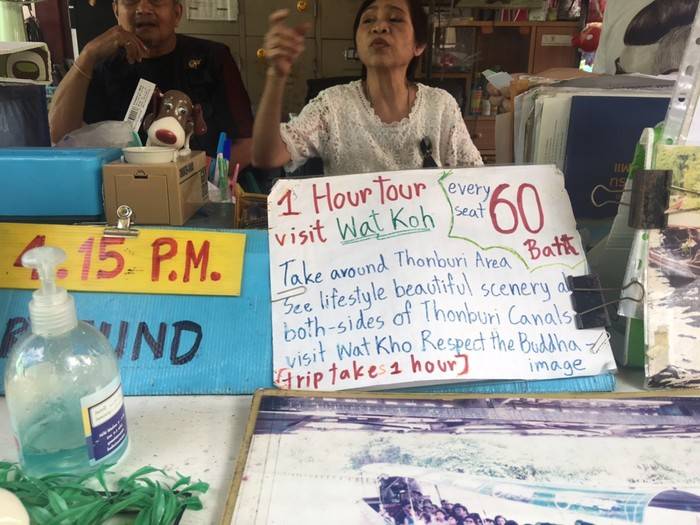 4.15 P.M.
FUND
1 Hour Tour
visit Wat Koh
every
seat 60
Batt
Take around Thonburi Area
see lifestyle beautiful scenery a
both-sides of Thonburi Canals
visit Wat Kho Respect the Buddha-
image
[trip takes 1 hour]